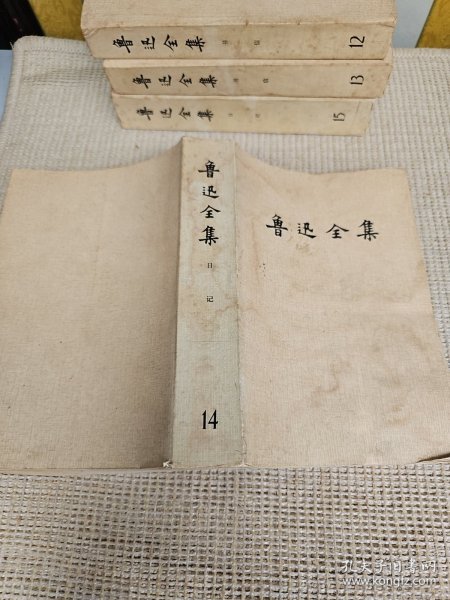 鲁迅全集 书信 12
鲁迅全集 书信 13
鲁迅全集 日记 15
鲁迅全集
日记
14
鲁迅全集
孔夫子旧书网
www.kongfz.com